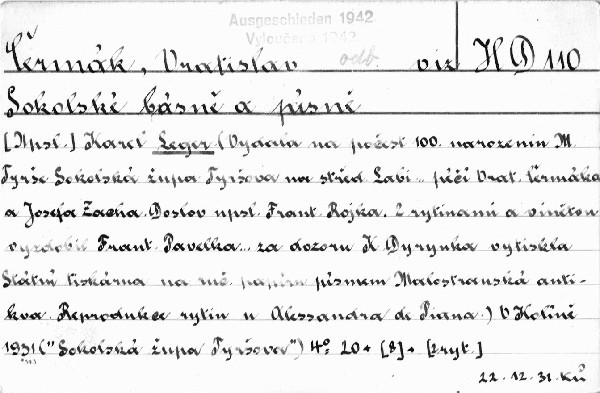 Ausgeschieden 1942
Vyloučeno 1942
odb.
Čermák, Vratislav viz H D 110
Sokolské básně a písně
[Napsl.] Karel Leger (Vydala na počest 100. narozenin M.
Tyrše Sokolská župa Tyršova na střed. Labi .. péčí Vrat. Čermáka
a Josefa Zacha. Doslov napsl. Frant. Rojka. 2 rytinami a vinětou
vyzdobil Frant. Pavelka... za dozoru K. Dyrynka vytiskla
Státní tiskárna na ruč. papíru písmem Malostranská anti-
kva. Reprodukce rytin u Alessandra de Piana.) V Kolíně
1931 ("Sokolská župa Tyršova") 4° 20 + [8] + [2 ryt.]
22. 12. 31. Ků